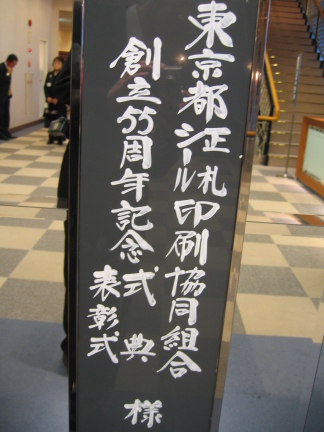 東京都正札シール印刷協同組合
創立55周年記念式典
表彰式
様